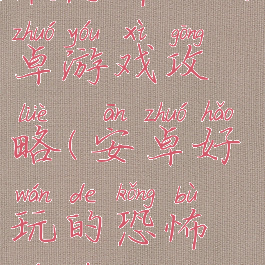 zhuó yóu xì gōng
卓游戏攻
lüè ān zhuó hǎo
略(安卓好
wán de kǒng bù
玩的恐怖